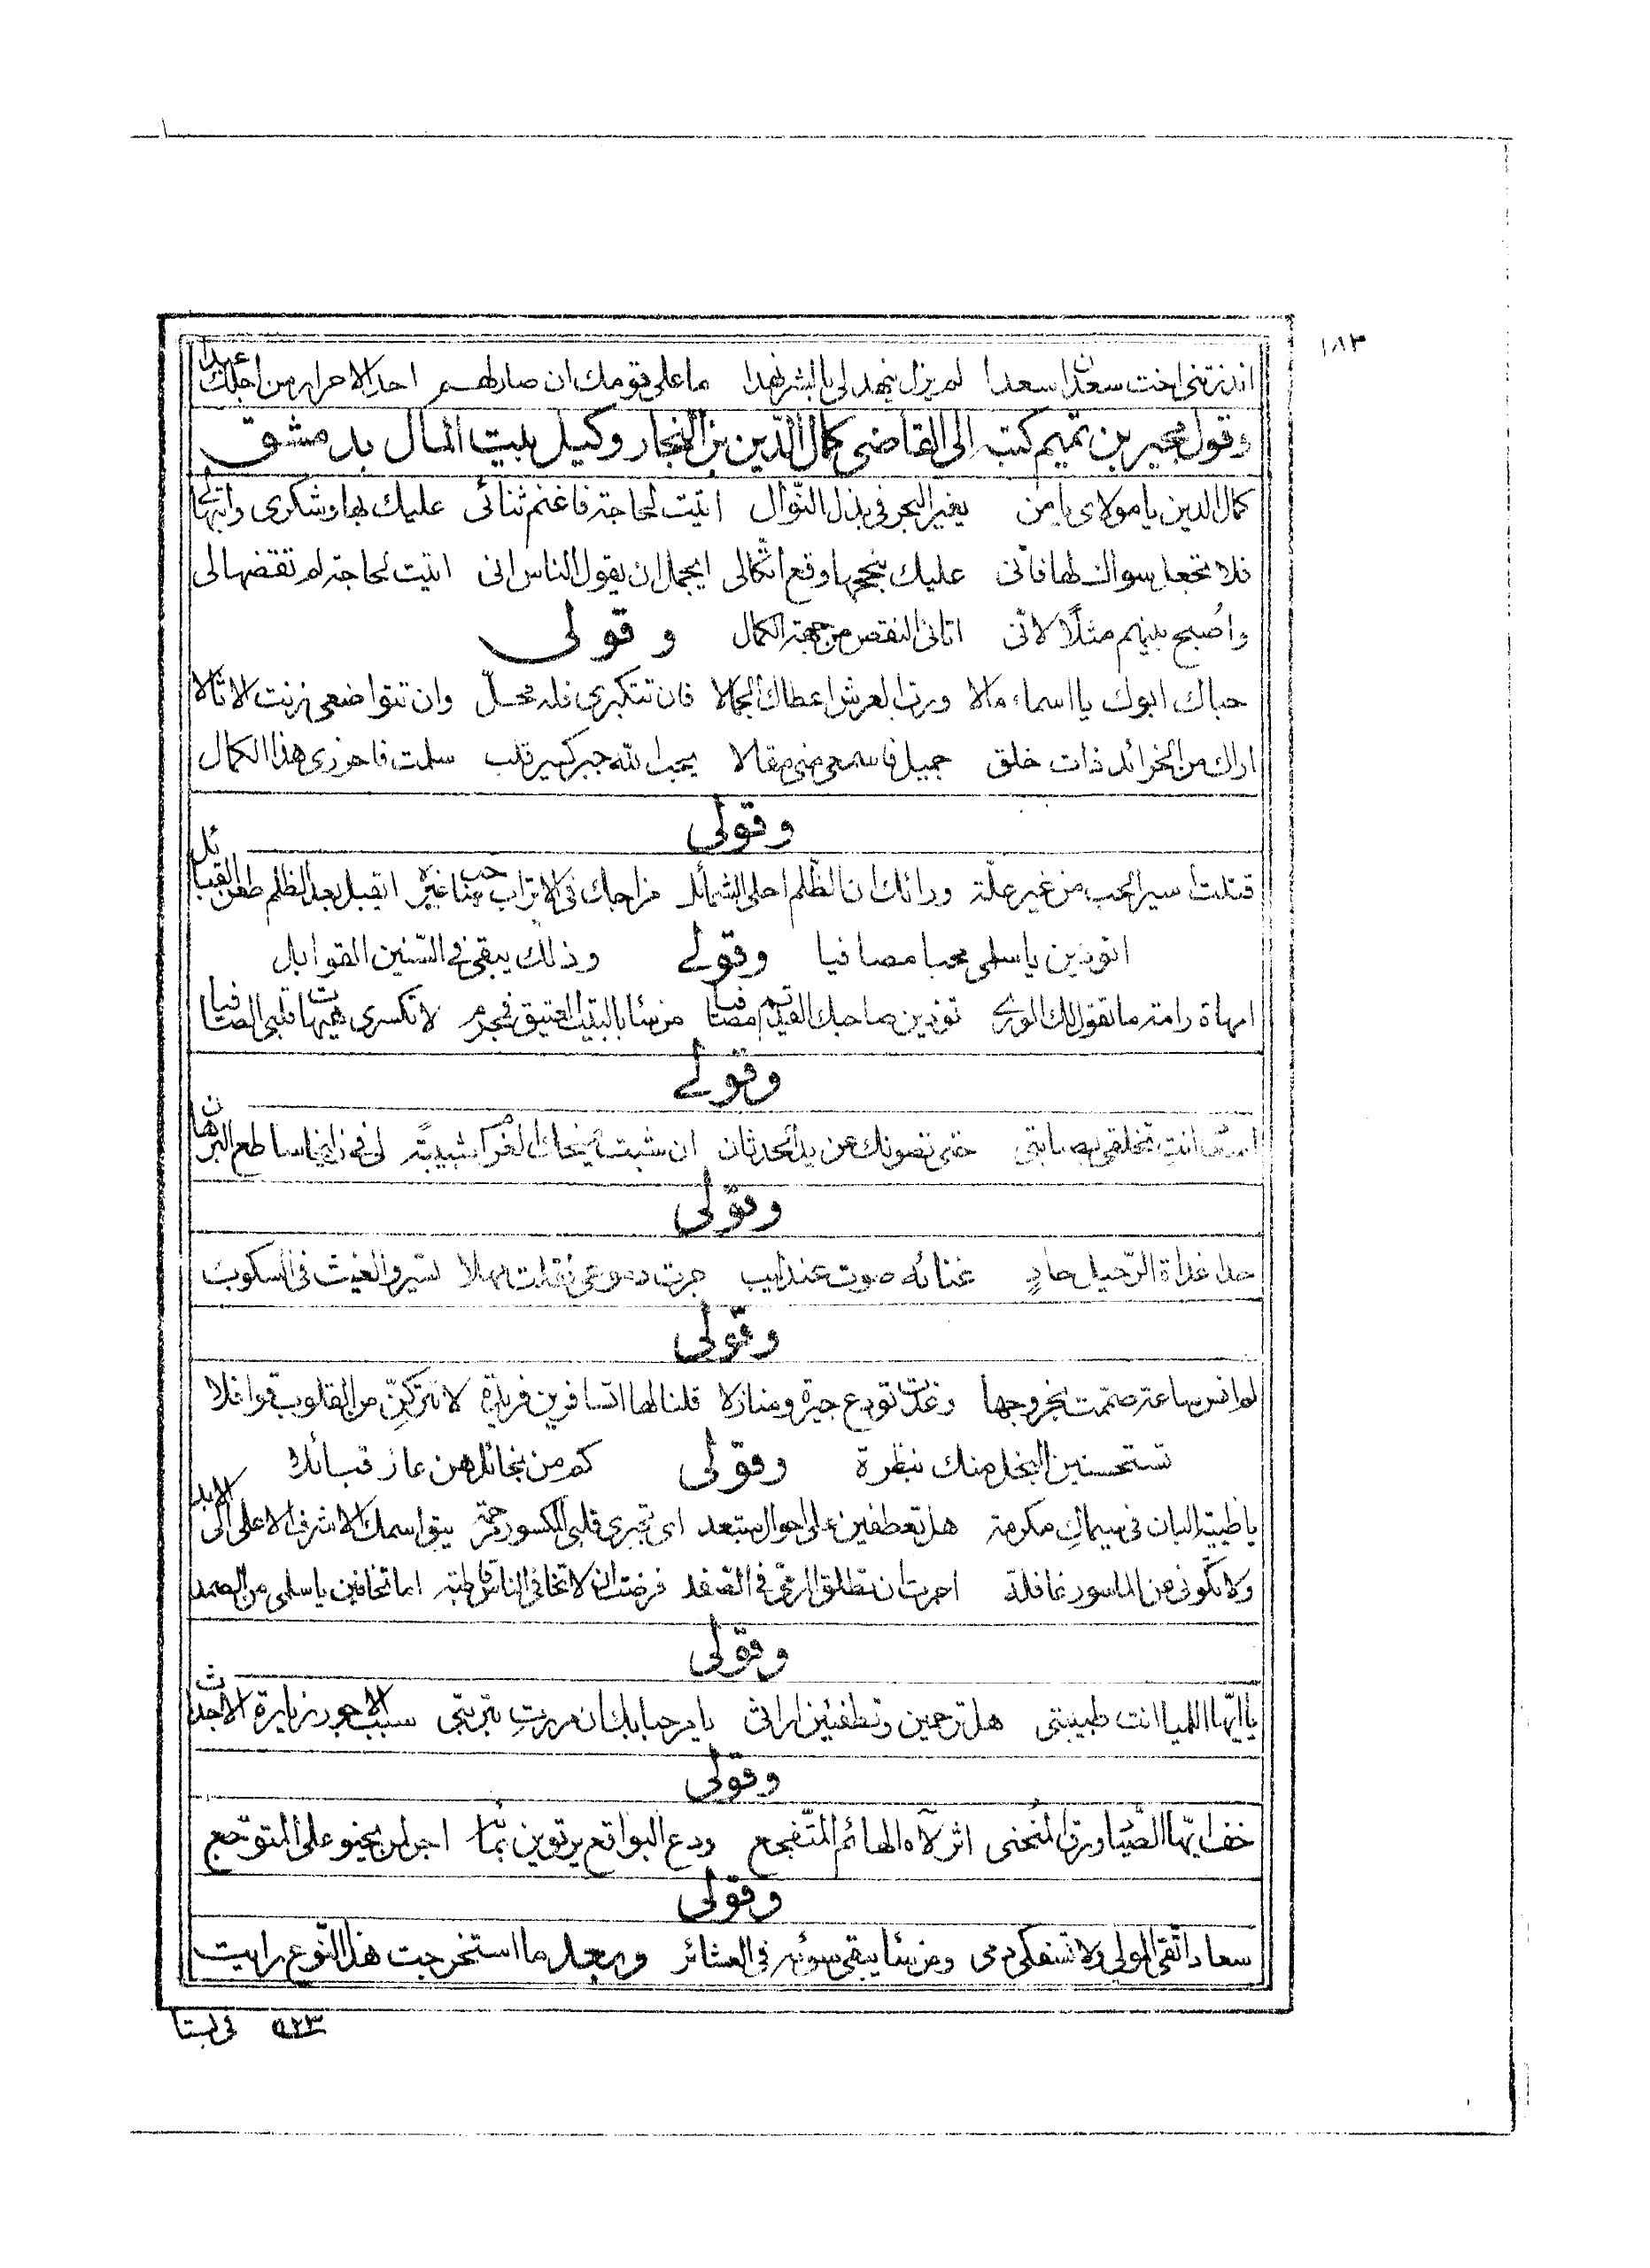 ١٨٣
اذ رنتنى اخت سعد سعدا لم يزل ينهد لى بالبشر نهدا ما على قومك ان صار لهم احد الاحرار من اجلك عبدا
وقول مجير بن تميم كتب الى القاضى كمال الدين بن النجار وكيل بيت المال بدمشق
كمال الدين يا مولاى يا من يغير البحر فى بذل النوال اتيت لحاجة فاغنم ثنائى عليك بها وشكرى وابتهالى
فلا تجعل سواك لها فانى عليك بنجحها وقع اتكالى ايجمل ان يقول الناس انى اتيت لحاجة لم تقضها لى
واُصبح بينهم مثلًا لانى اتانى النقص من جهة الكمال وقولى
حباك ابوك يا اسماء مالا ورب العرش اعطاك الجمالا فان تتكبرى فله محلّ وان تتواضعى زنت الاثالا
اراك من الخرائد ذات خلق جميل فاسمعى منى مقالا يحب الله جبر كسير قلب سلمت فاحوزى هذا الكمال
وقولى
قتلت اسير الحب من غير علّة ورائك ان الظّلم احلى الشمائل من احبك فى الاتراب حب غيره ايقبل بعد الظلم طعن القبائل
اتوذين يا سلمى محبا مصافيا وقولے وذلك يبقى فے السّنين القوابل
امهاة رامة ما تقول لك الورى توذين صاحبك القديم مصافيا من بالبيت العتيق لا تكسرى قلبى الصافيا
وقولے
انت تخلقى بصبابتى حتى تصونك عن يد الحدثان ان شبت شبيبةً لى فى زليخا ساطع البرهان
وقولى
حدا غداة الرّحيل حادٍ غنائه صوت عندليب جرت دموعى فقلت مهلا تسير والغيث فى السكوب
وقولى
لم انس ساعة صمّمت بخروجها وغدت تودع جيرة ومنازلا قلنا لها اتسافرين فريدة لا تتركنّ من القلوب قوافلا
تستحسنين البخل منك بنظرة وقولى كم من بخائل هن عار قبائل
يا ظبية البان فى سيماكِ مكرمة هل تعطفين على احوال مبتعد اى تجبرى قلبى المكسور مرحمة يبق اسمك الاشرف الاعلى الى الابد
ولا تكونى عن الماسور غافلة احريت ان تطلق المرمى فى الصفد فرضت ان لا تخافى الناس قاطبة اما تخافين يا سلمى من الصمد
وقولى
يا ايّها اللميا انت طبيبتى هل ترحمين وتطفئين يا مرحبا بك ان مررتِ بتربتى سبب الاجور زيارة الاجداث
وقولى
خف ايّها الصيّاد ورق المنحنى اثر لآه الهائم المتفجع ودع البواقع يرتوين اجر لمن يحنو على المتوجّع
وقولى
سعاد اتقى المولى ولا تسفكى دمى يبقى سوئه فى العشائر وبعد ما استخرجت هذا النّوع رايت
٥٢٣ فى بستا